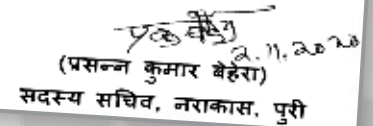 2.11.2020
(प्रसन्न कुमार बेहेरा)
सदस्य सचिव, नराकास, पुरी